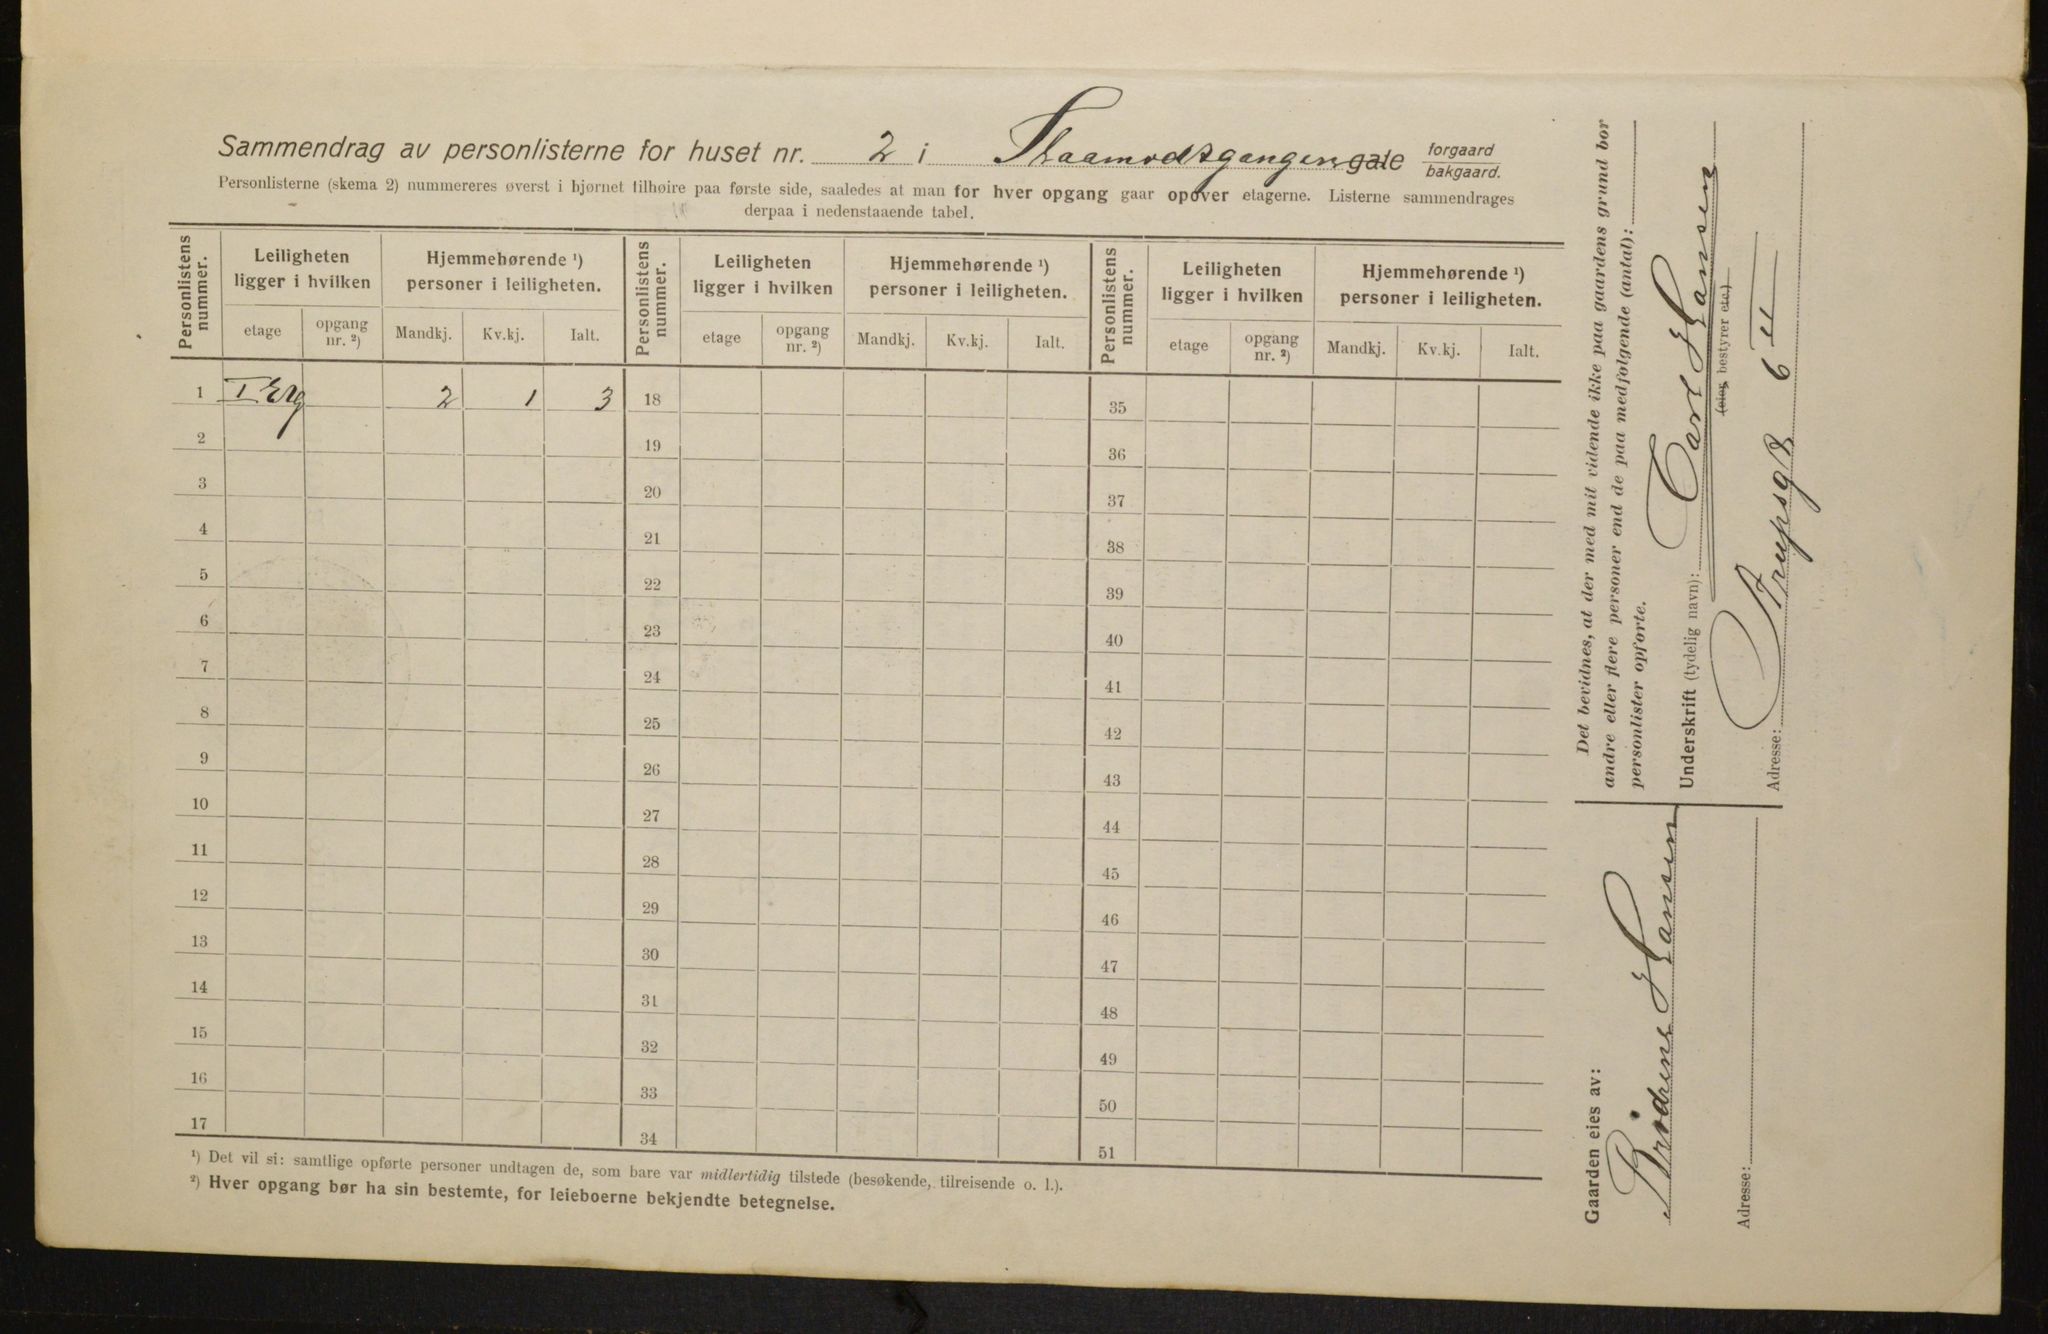 Sammendrag av personlisterne for huset nr. 2 i Thaamodsgangen gate forgaard bakgaard.
Personlisterne (skema 2) nummereres øverst i hjørnet tilhøire paa første side, saaledes at man for hver opgang gaar opover etagerne. Listerne sammendrages
derpaa i nedenstaaende tabel.
Personlistens nummer. Leiligheten ligger i hvilken Hjemmehørende ¹) personer i leiligheten. Personlistens nummer. Leiligheten ligger i hvilken Hjemmehørende ¹) personer i leiligheten. Personlistens nummer. Leiligheten ligger i hvilken Hjemmehørende ¹) personer i leiligheten.
etage opgang nr. ²) Mandkj. Kv.kj. Ialt. etage opgang nr. ²) Mandkj. Kv.kj. Ialt. etage opgang nr. ²) Mandkj. Kv.kj. Ialt.
1 I Etg 2 1 3 18 35
2 19 36
3 20 37
4 21 38
5 22 39
6 23 40
7 24 41
8 25 42
9 26 43
10 27 44
11 28 45
12 29 46
13 30 47
14 31 48
15 32 49
16 33 50
17 34 51
¹) Det vil si: samtlige opførte personer undtagen de, som bare var midlertidig tilstede (besøkende, tilreisende o. l.).
²) Hver opgang bør ha sin bestemte, for leieboerne bekjendte betegnelse.
Det bevidnes, at der med mit vidende ikke paa gaardens grund bor
andre eller flere personer end de paa medfølgende (antal):
personlister opførte.
Underskrift (tydelig navn): Carl Hansen
(eier, bestyrer etc.)
Adresse: 6 II
Gaarden eies av:
Brødrene Hansen
Adresse: